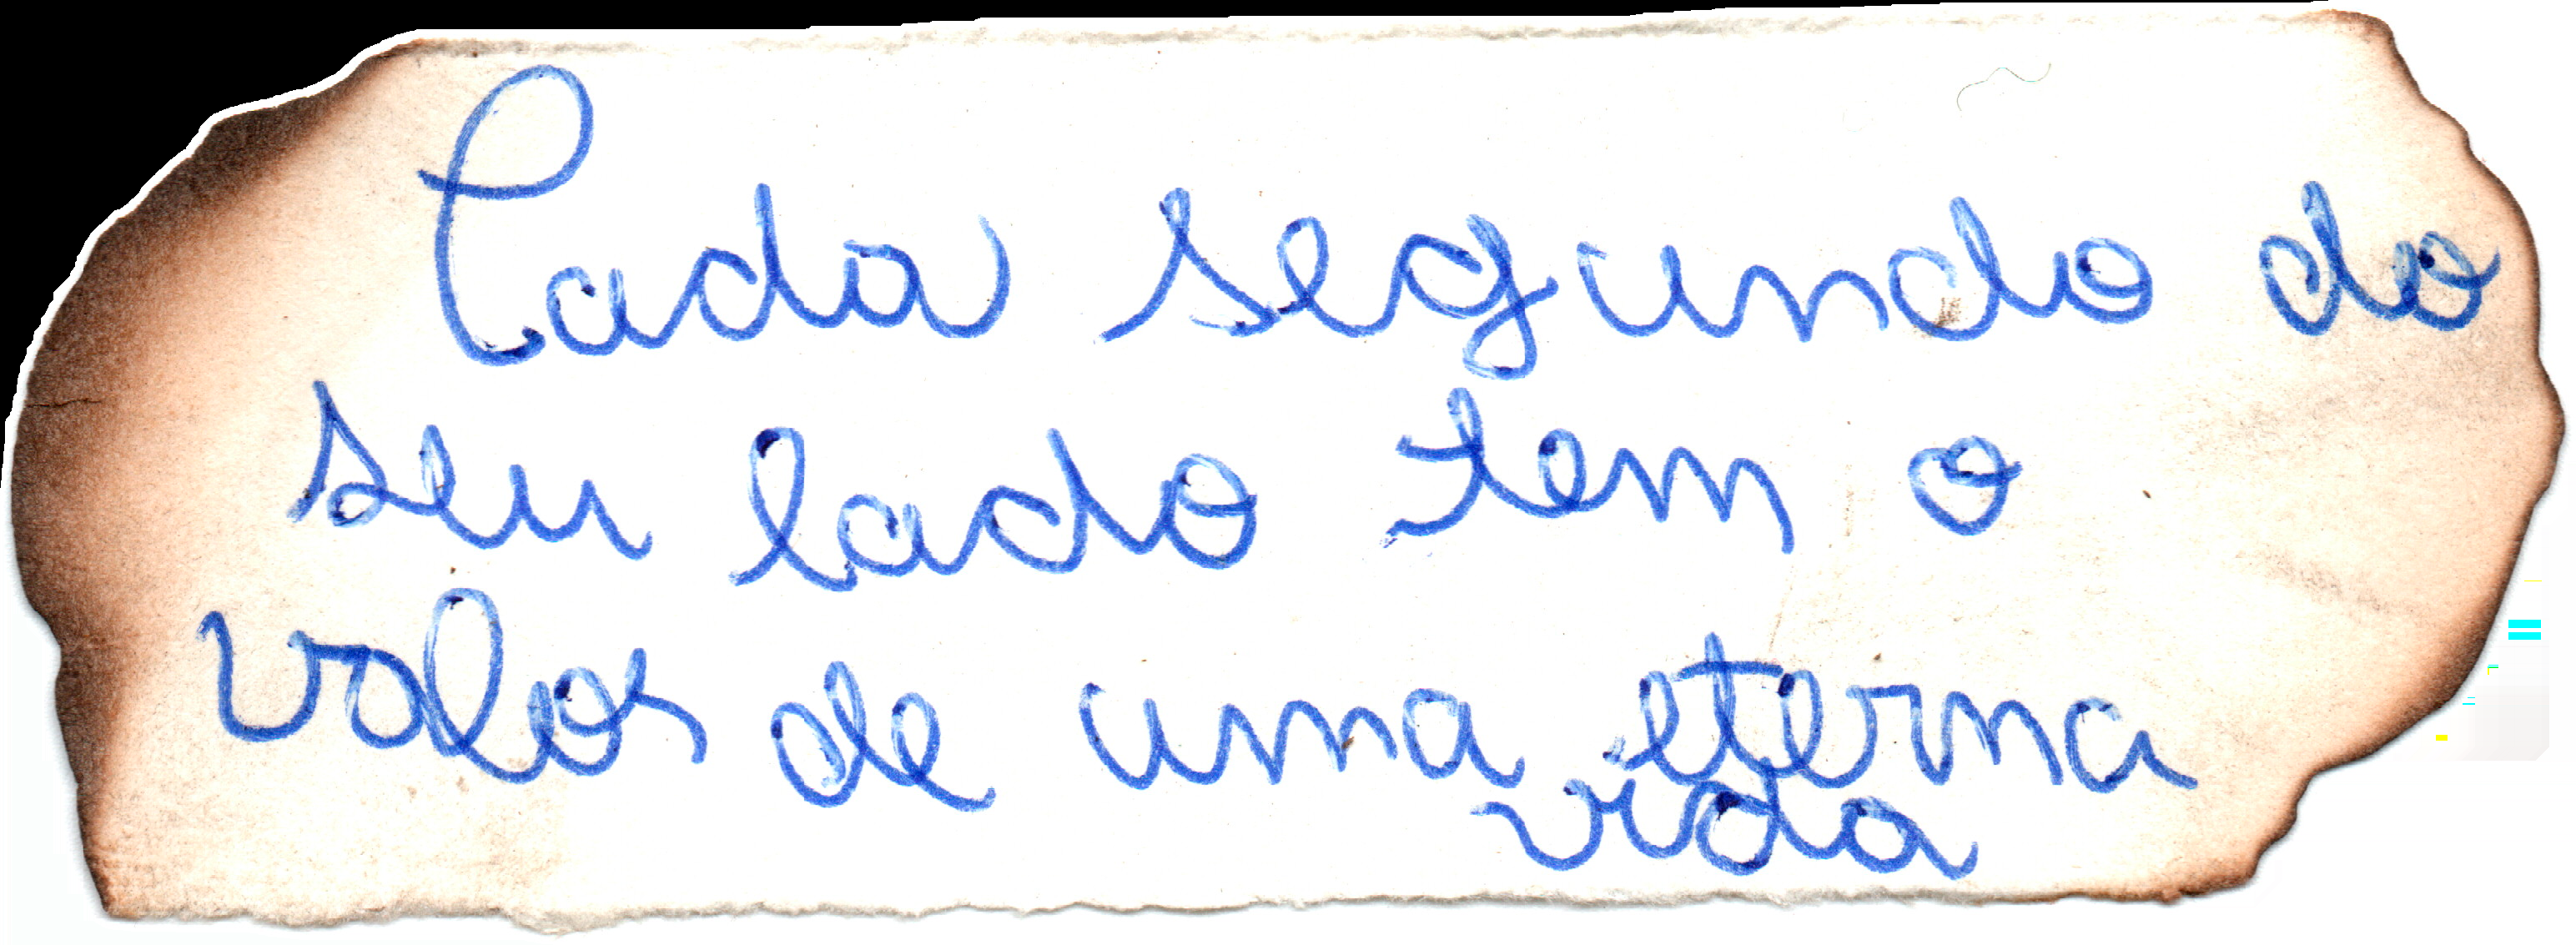 Cada segundo do
seu lado tem o
valor de uma eterna
vida